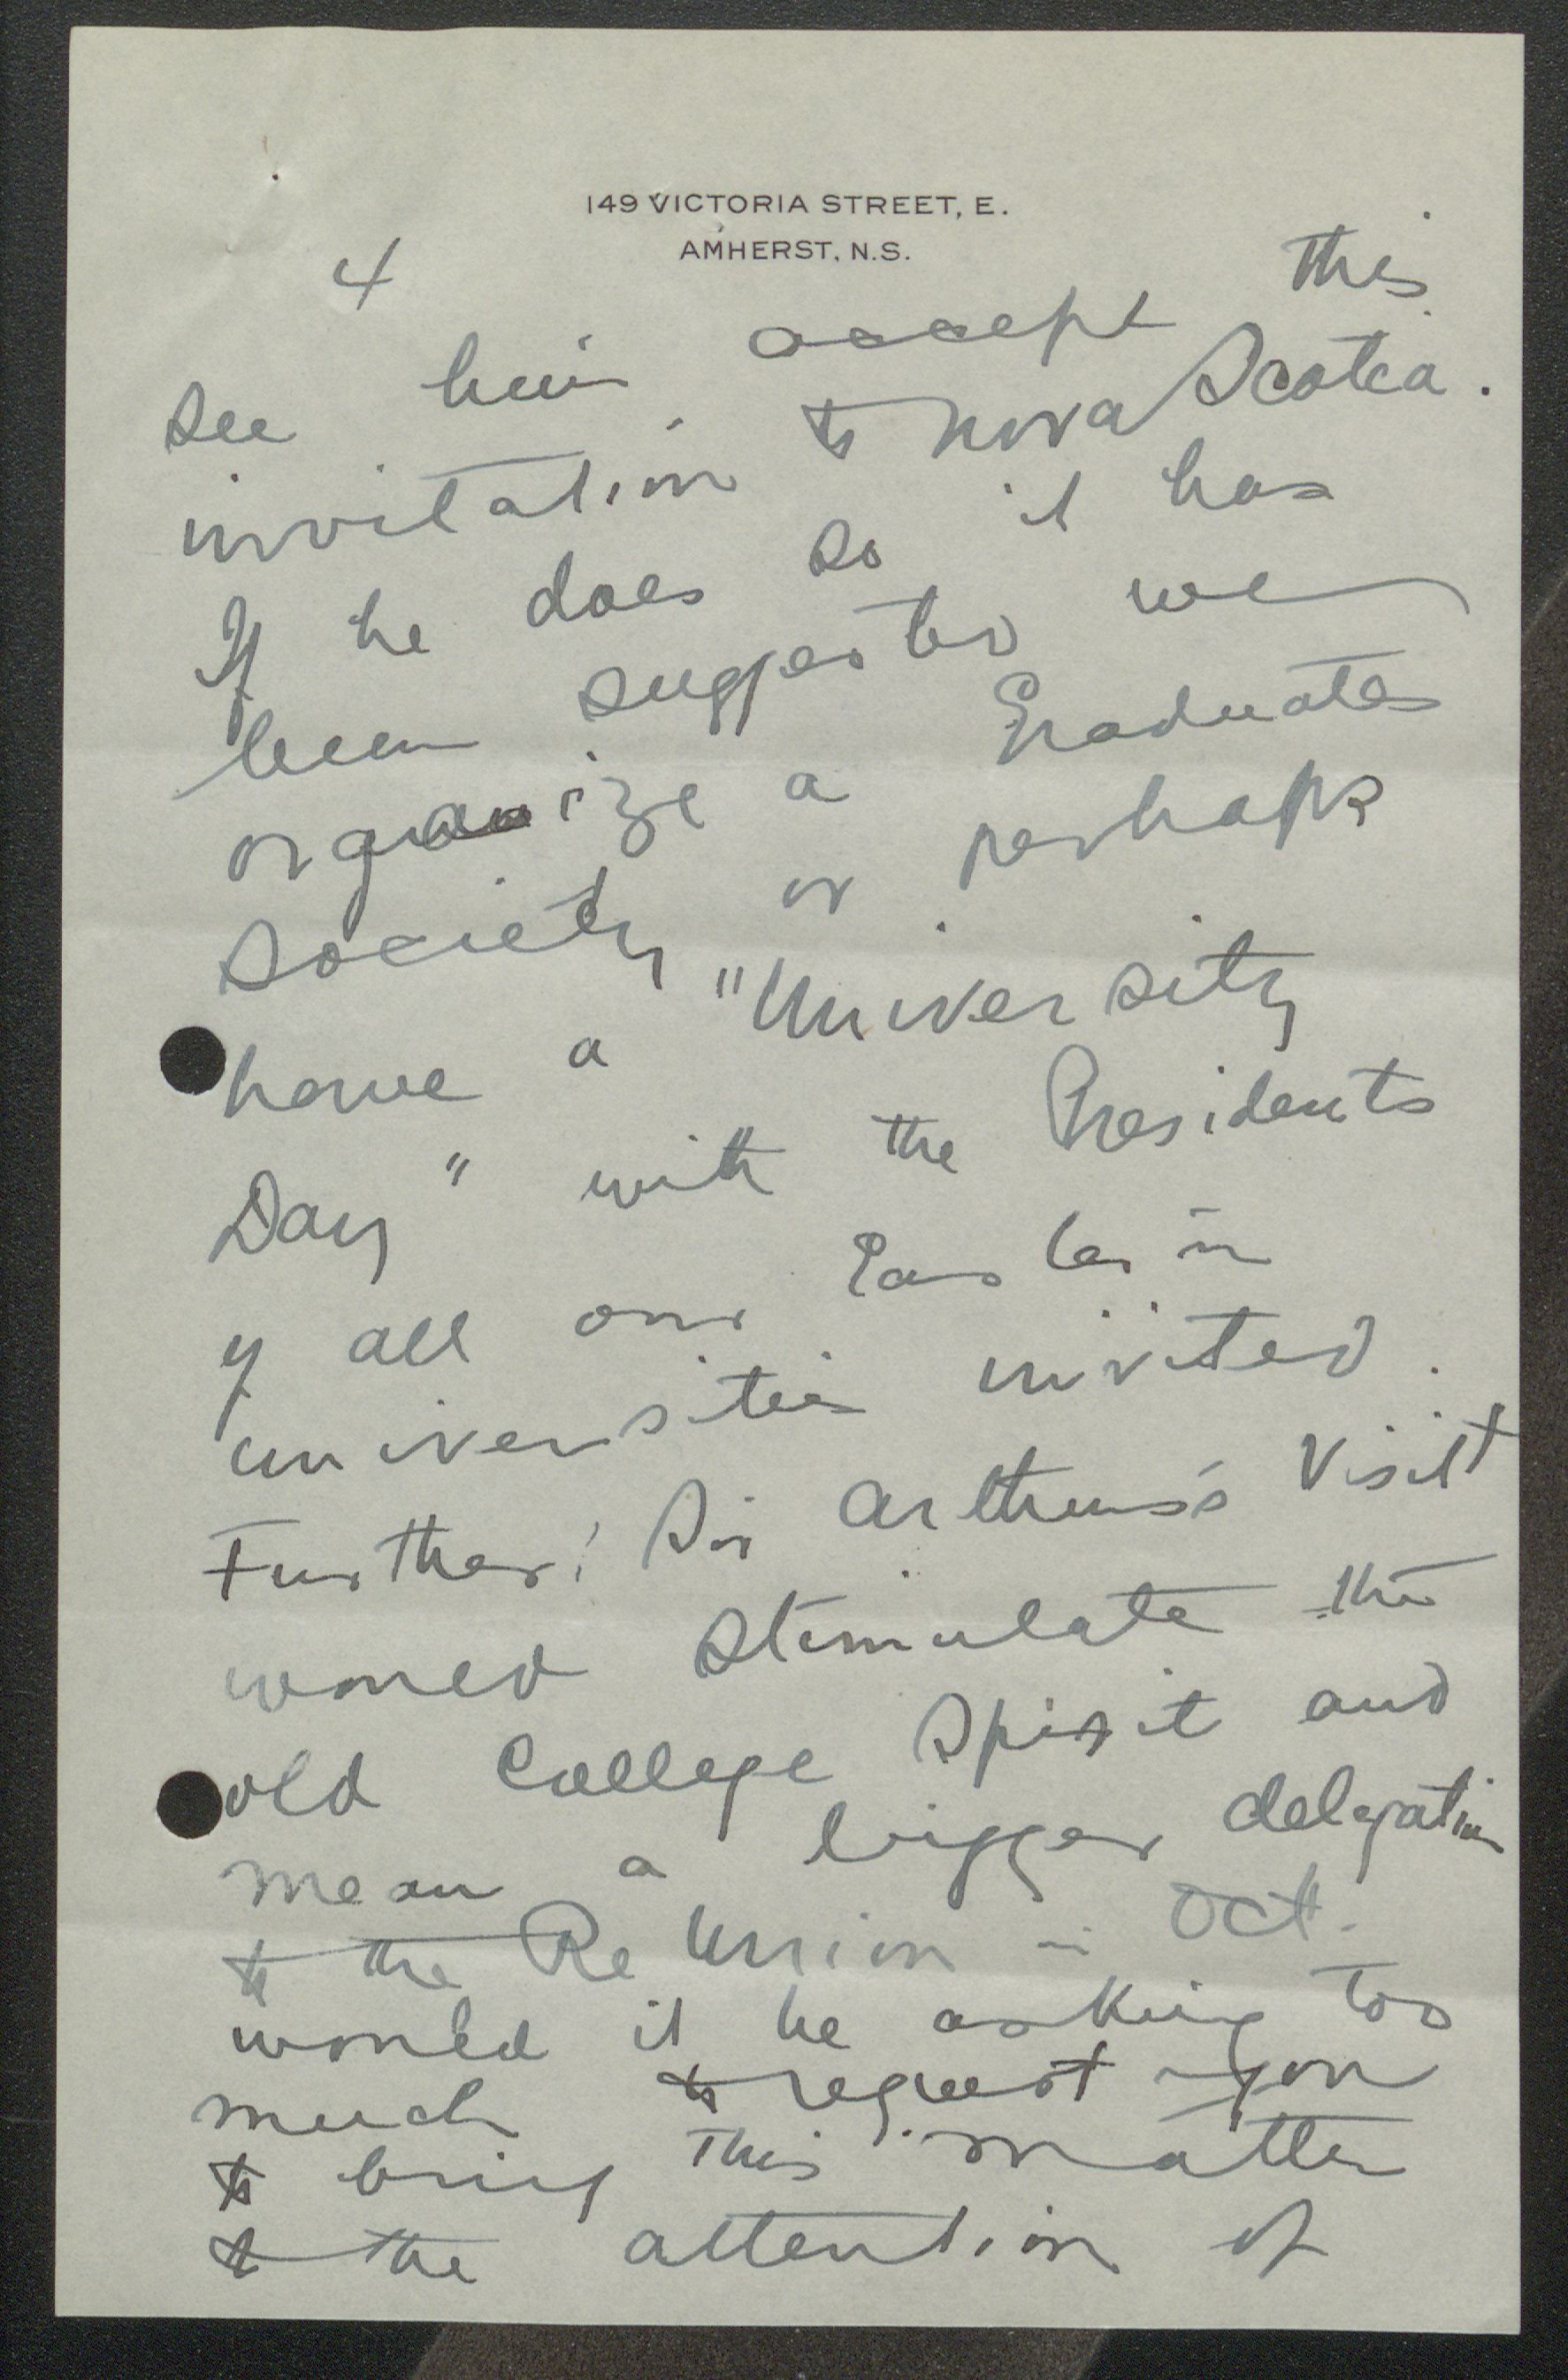 149 VICTORIA STREET, E.
AMHERST, N.S.
4
see him accept this
invitation to Nova Scotia.
If he does so it has
been suggested we
organize a Graduates
Society or perhaps
have a "University
Day" with the Presidents
of all our Eastern
universities invited.
Further! Sir Arthur's visit
would stimulate the
old College spirit and
mean a bigger delegation
to the Re Union in Oct.
would it be asking too
much to request you
to bring this matter
to the attention of